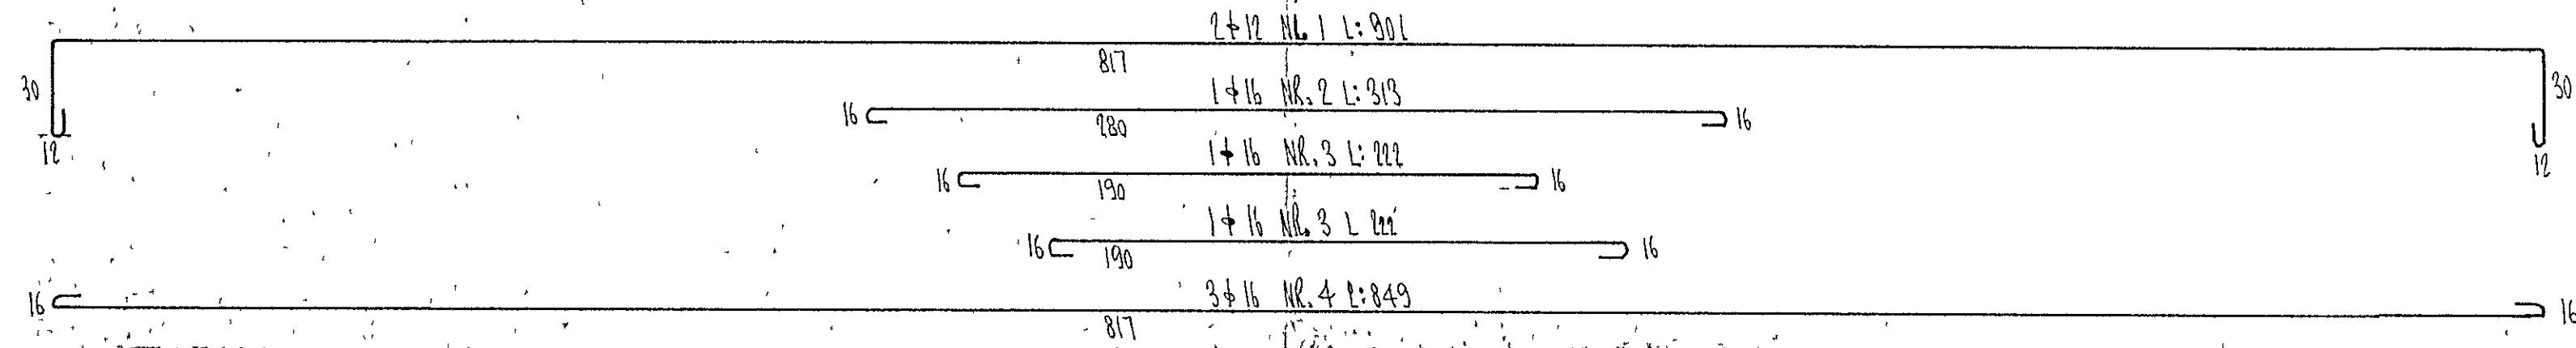 2ϕ12 NR. 1 L: 901
817
30
30
12
12
1ϕ16 NR. 2 L: 313
16
280
16
1ϕ16 NR. 3 L: 222
16
190
16
1ϕ16 NR. 3 L 222
16
190
16
3ϕ16 NR. 4 L: 849
16
817
16